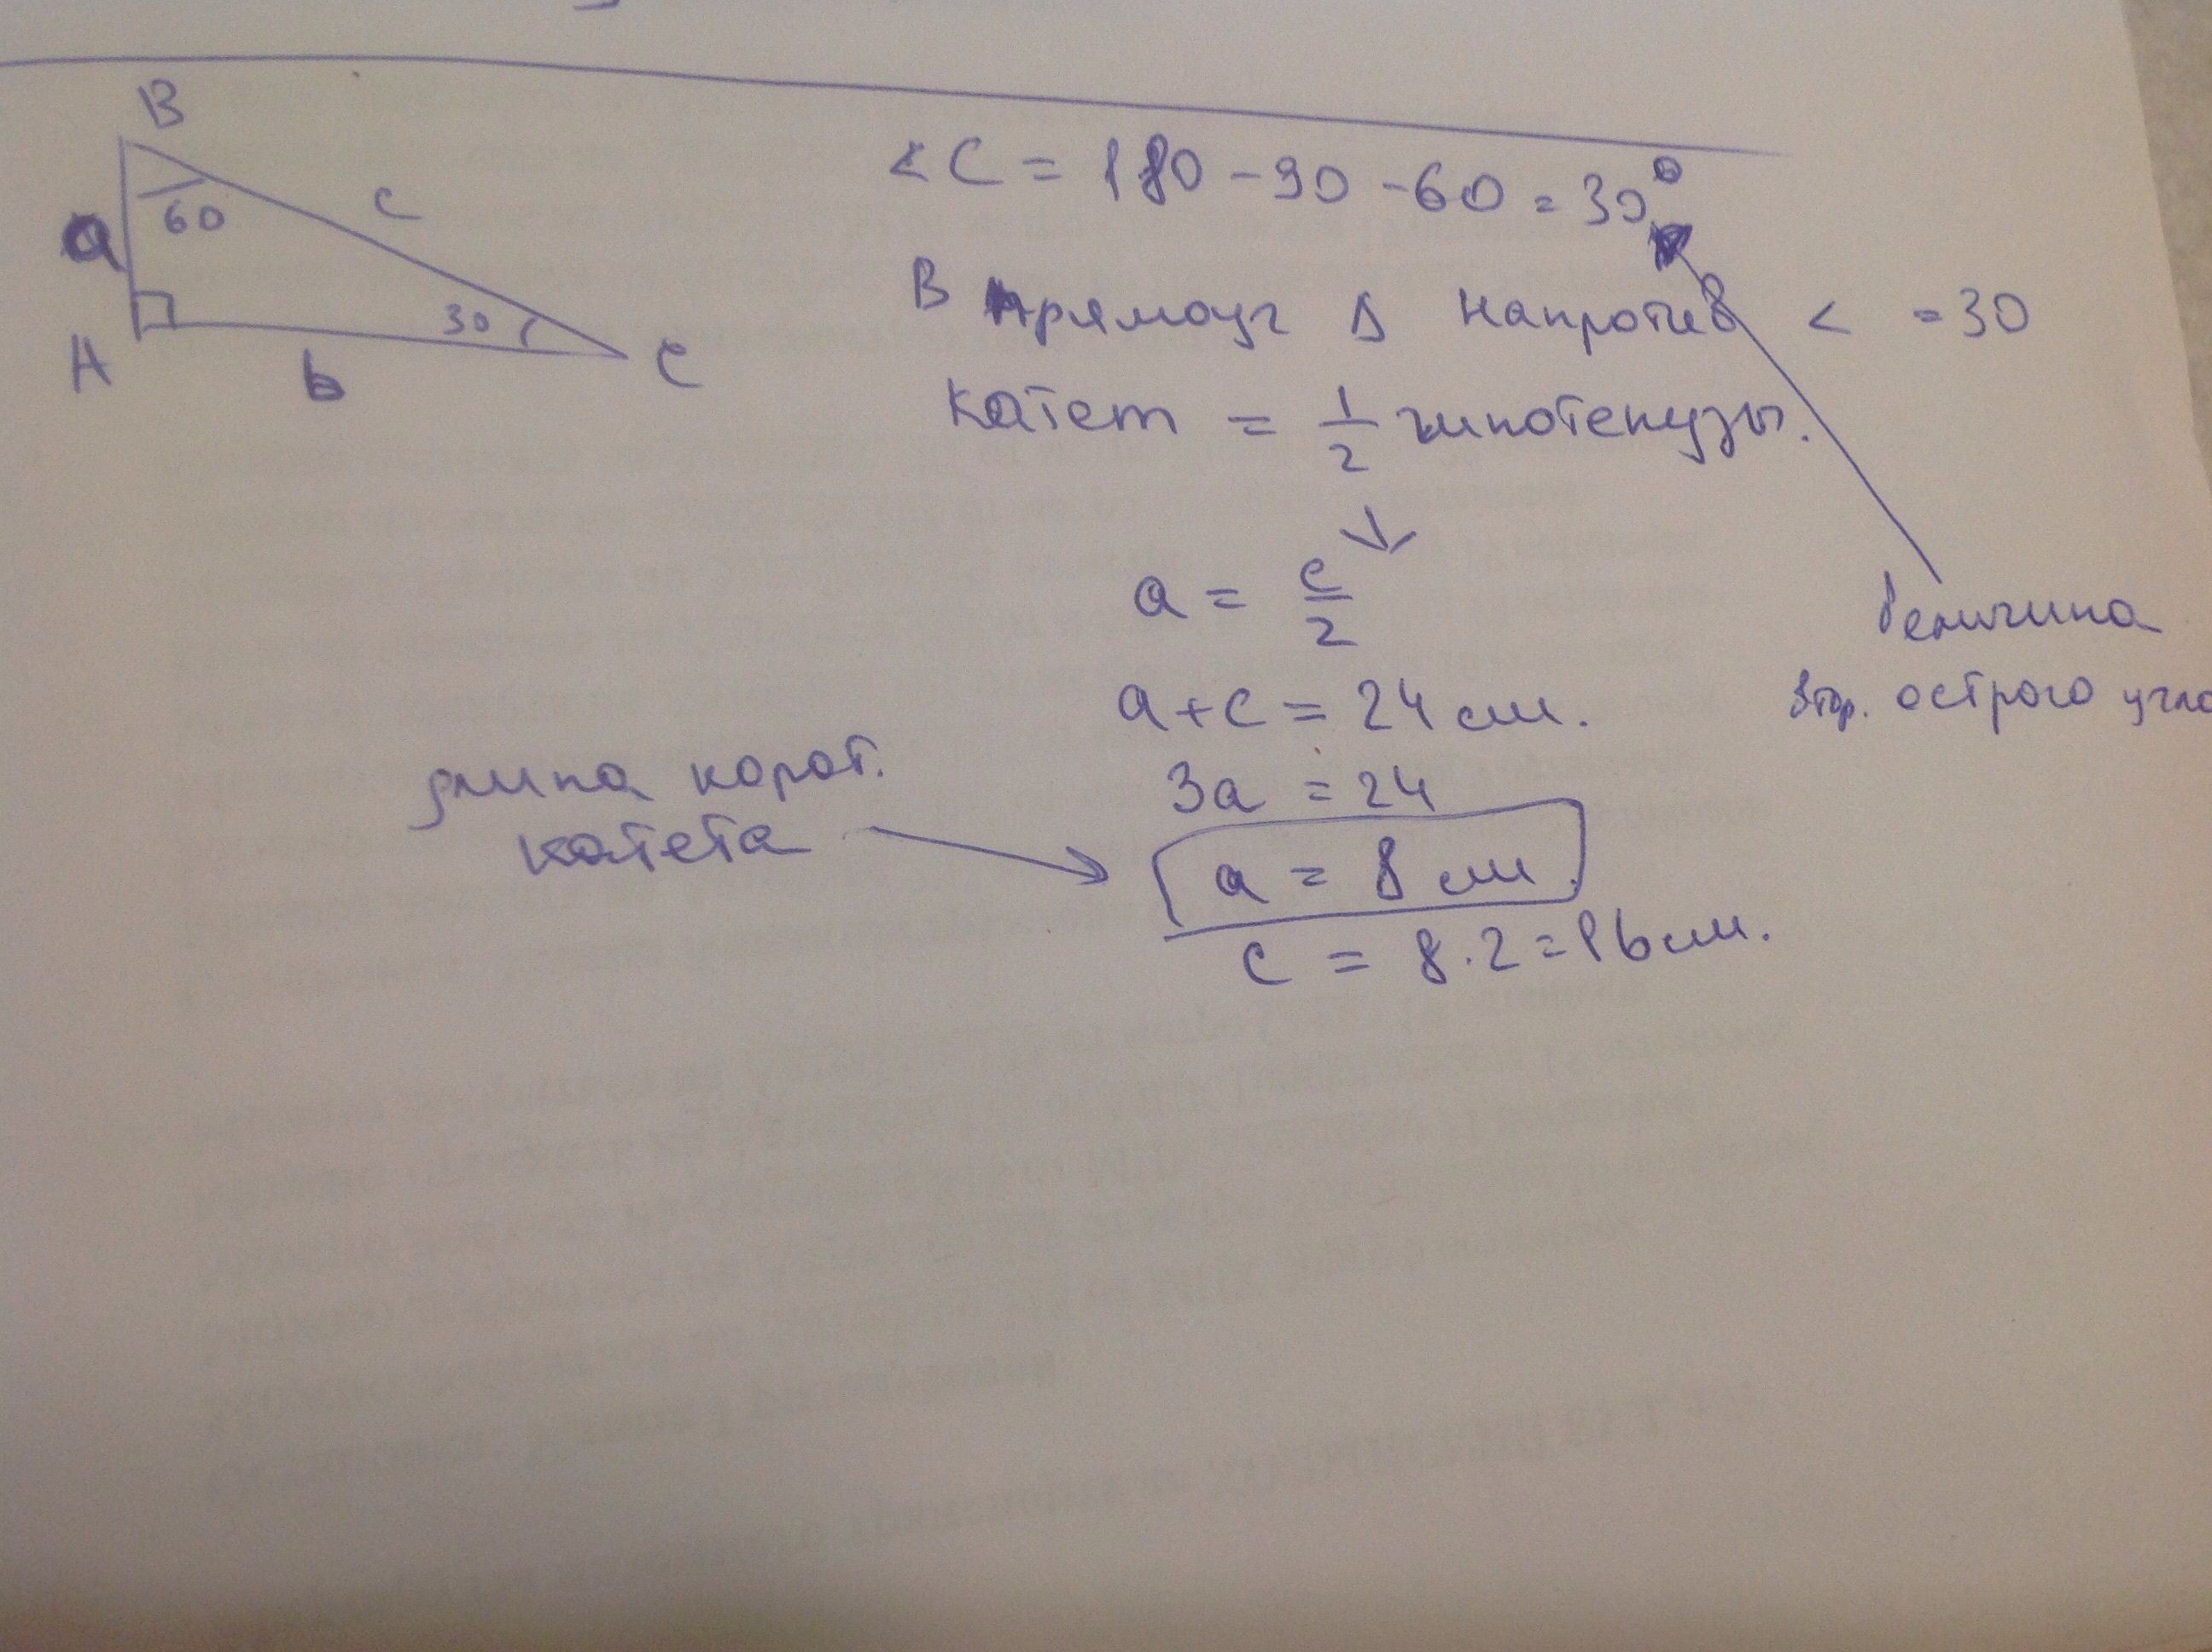 B
a
60
c
A
b
30
C
< C = 180 - 90 - 60 = 30°
В прямоуг Δ напротив < = 30
катет = 1/2 гипотенузы.
a = c/2
a + c = 24 см.
3a = 24
a = 8 см.
c = 8 · 2 = 16 см.
длина корот.
катета
величина
втор. острого угла